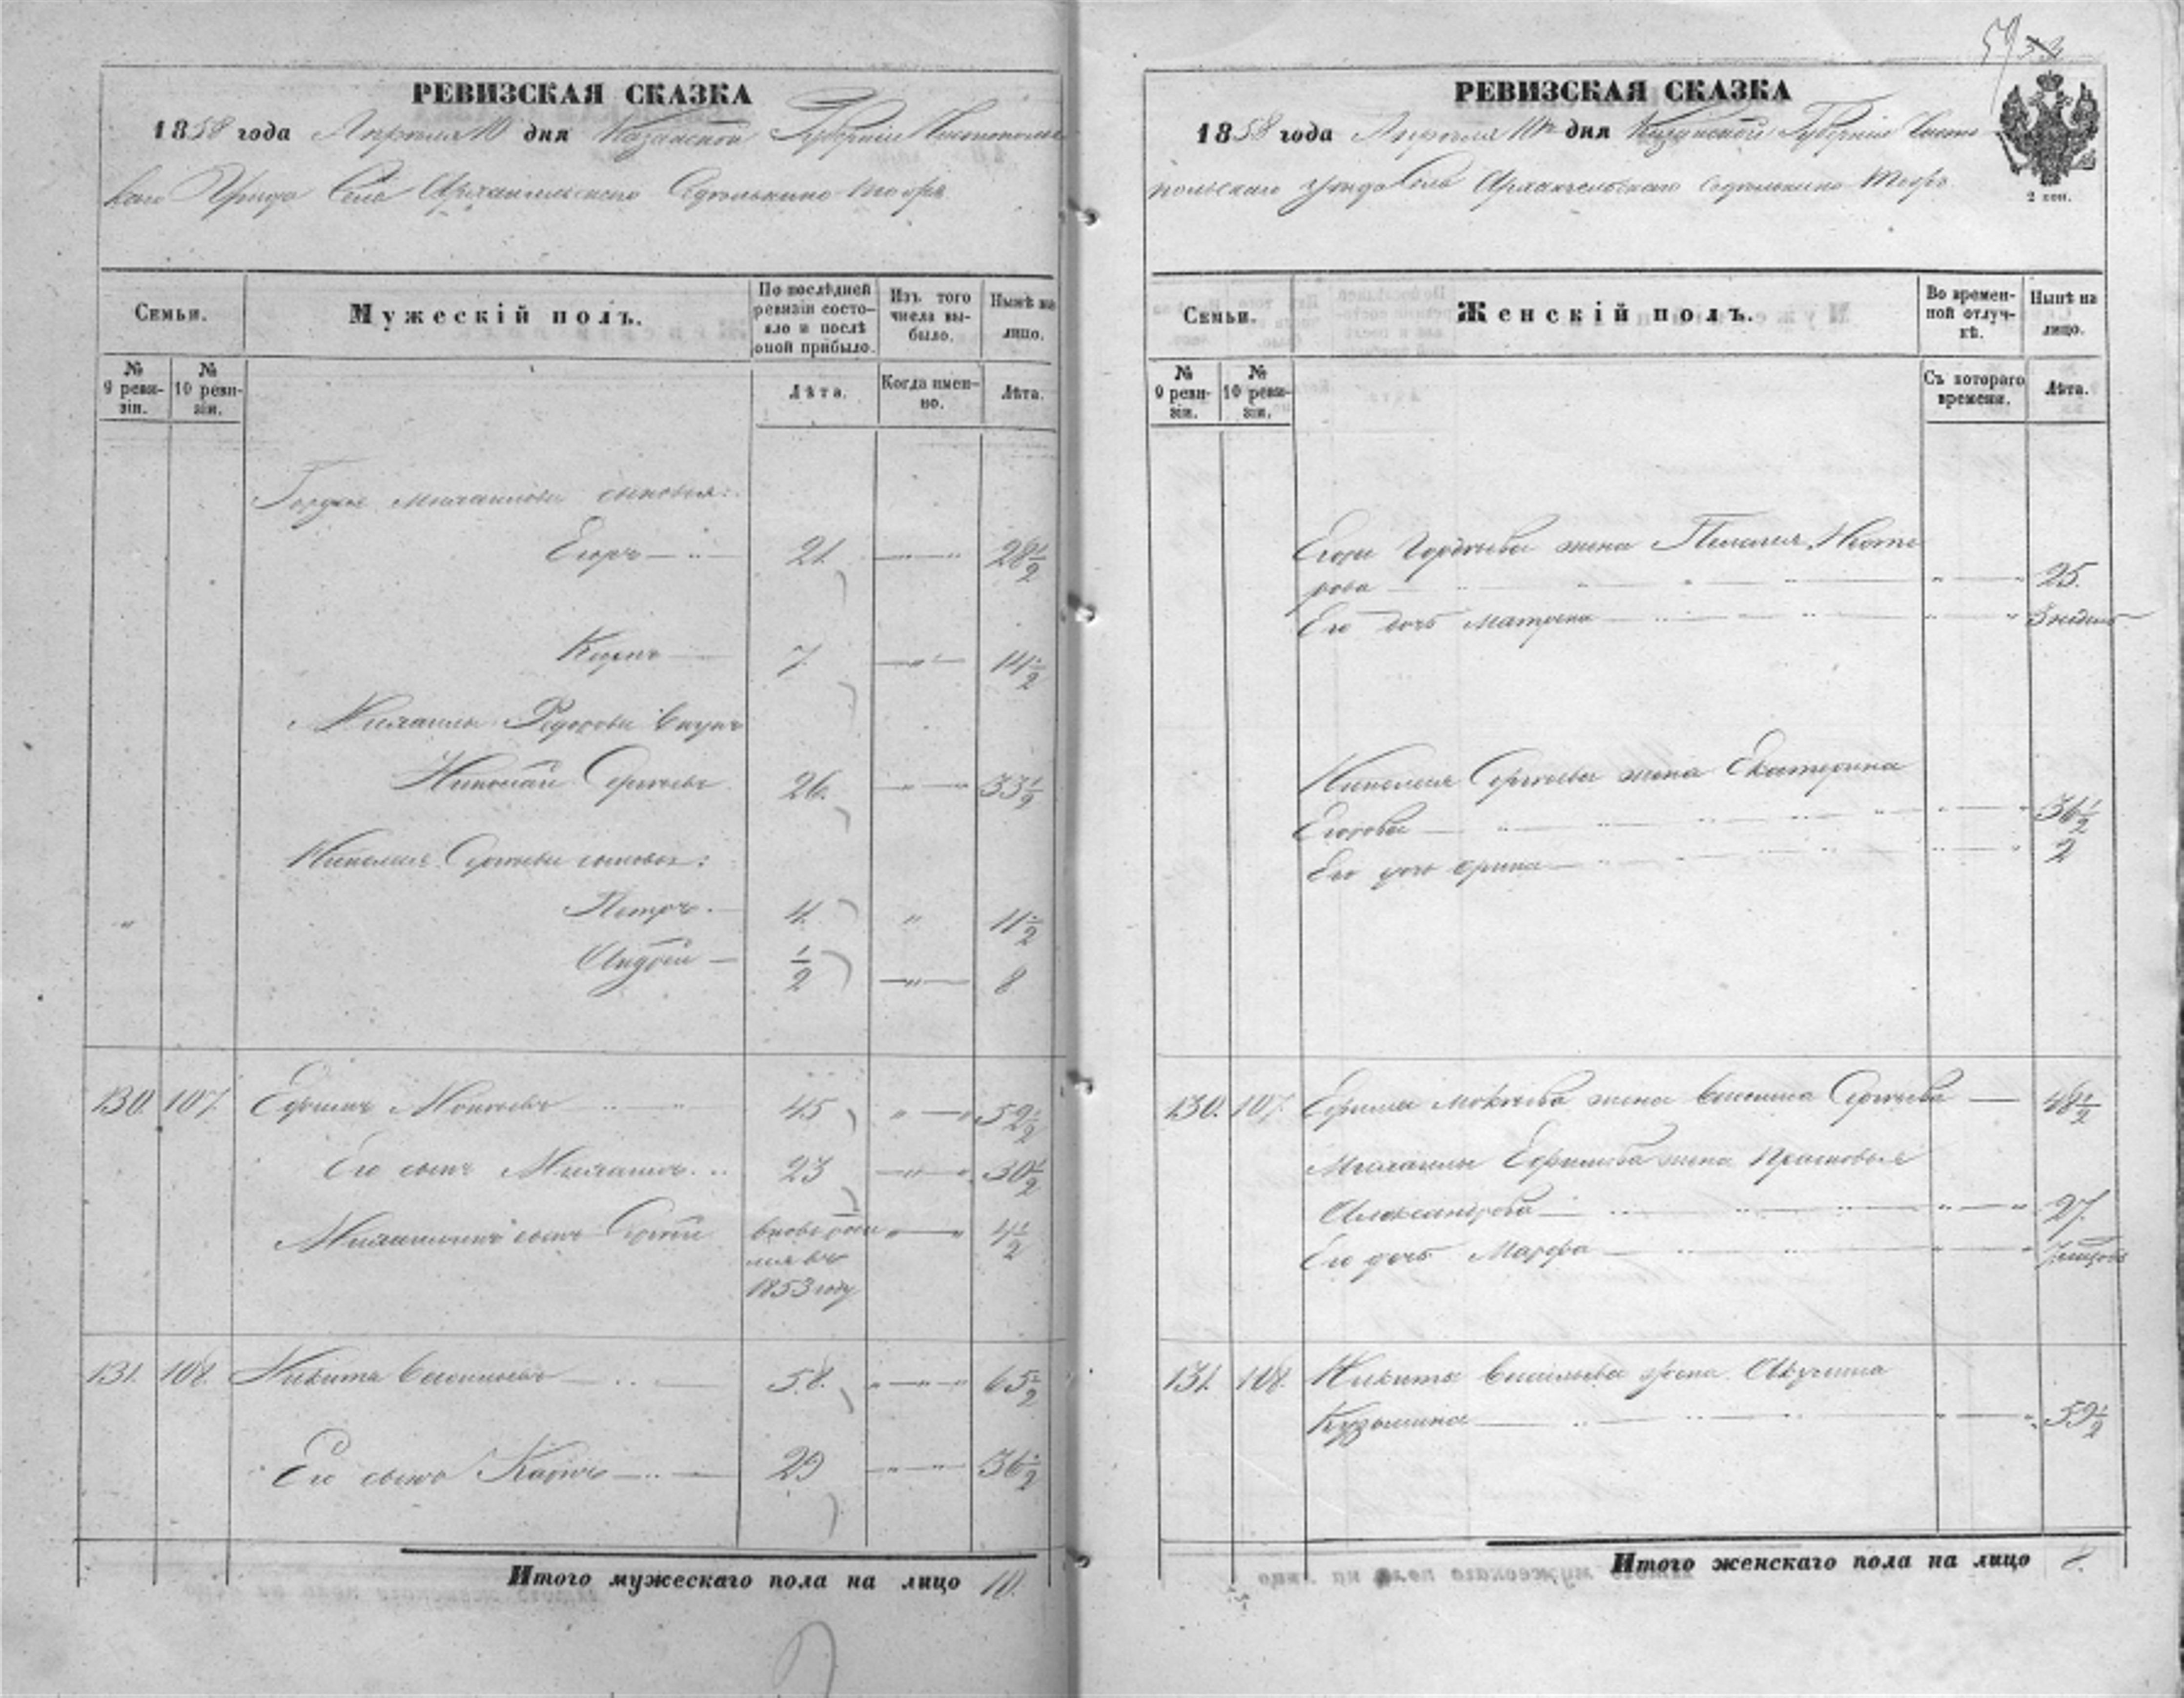 5932
РЕВИЗСКАЯ СКАЗКА
1858 года Апреля 10 дня Казанской Губернии Чистополь
скаго Уезда Села Архангельскаго
Семьи.
Мужескій полъ.
По послѣдней ревизіи состо-
яло и послѣ
оной прибыло.
Изъ того
числа вы-
было.
Нынѣ на
лицо.
№
9 реви-
зіи.
№
10 реви-
зіи.
Лѣта.
Когда имен-
но.
Лѣта.
Гордея Михайлова сыновья:
Егоръ 21 28 1/2
Карпъ 7 14 1/2
Михаилы Федорова внукъ
Николай Сергеевъ 26 33 1/2
Николая Сергеева сыновья:
Петръ 4 11 1/2
Андрей 1/2 8
130. 107. Ефимъ Мокеевъ 45 52 1/2
Его сынъ Михаилъ 23 30 1/2
Михаиловъ сынъ Сергей вновь рожд
1853 году 4 1/2
131. 108. Никита Васильевъ 58. 65 1/2
Его сынъ Карпъ 29 36 1/2
Итого мужескаго пола на лицо 10.
РЕВИЗСКАЯ СКАЗКА
1858 года Апреля 10 дня Казанской Губернии Чисто
польскаго уезда Села Архангельскаго
2 коп.
Семьи.
Женскій полъ.
Во времен-
ной отлуч-
кѣ.
Нынѣ на
лицо.
№
9 реви-
зіи.
№
10 реви-
зіи.
Съ котораго
времени.
Лѣта.
Егора Гордеева жена Пелагея Несте
рова 25.
Его дочь Матрена 3 недель
Николая Сергеева жена Екатерина
Егорова 36 1/2
Его дочь Орина 2
130. 107. Ефима Мокеева жена Василиса Сергеева 48 1/2
Михаилы Ефимова жена Прасковья
Александрова 27.
Его дочь Марфа
131. 108. Никиты Васильева жена Акулина
Кузьмина 59 1/2
Итого женскаго пола на лицо 8.